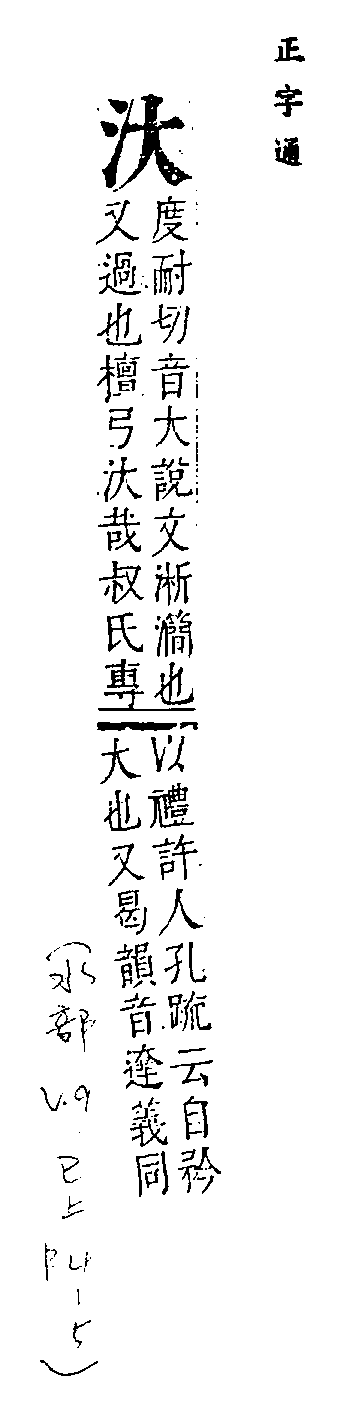 正字通
汏
度耐切音大說文淅灡也
又過也檀弓汏哉叔氏專
以禮許人孔䟽云自矜
大也又曷韻音達義同
(水部
V.9
巳上
P4-5)